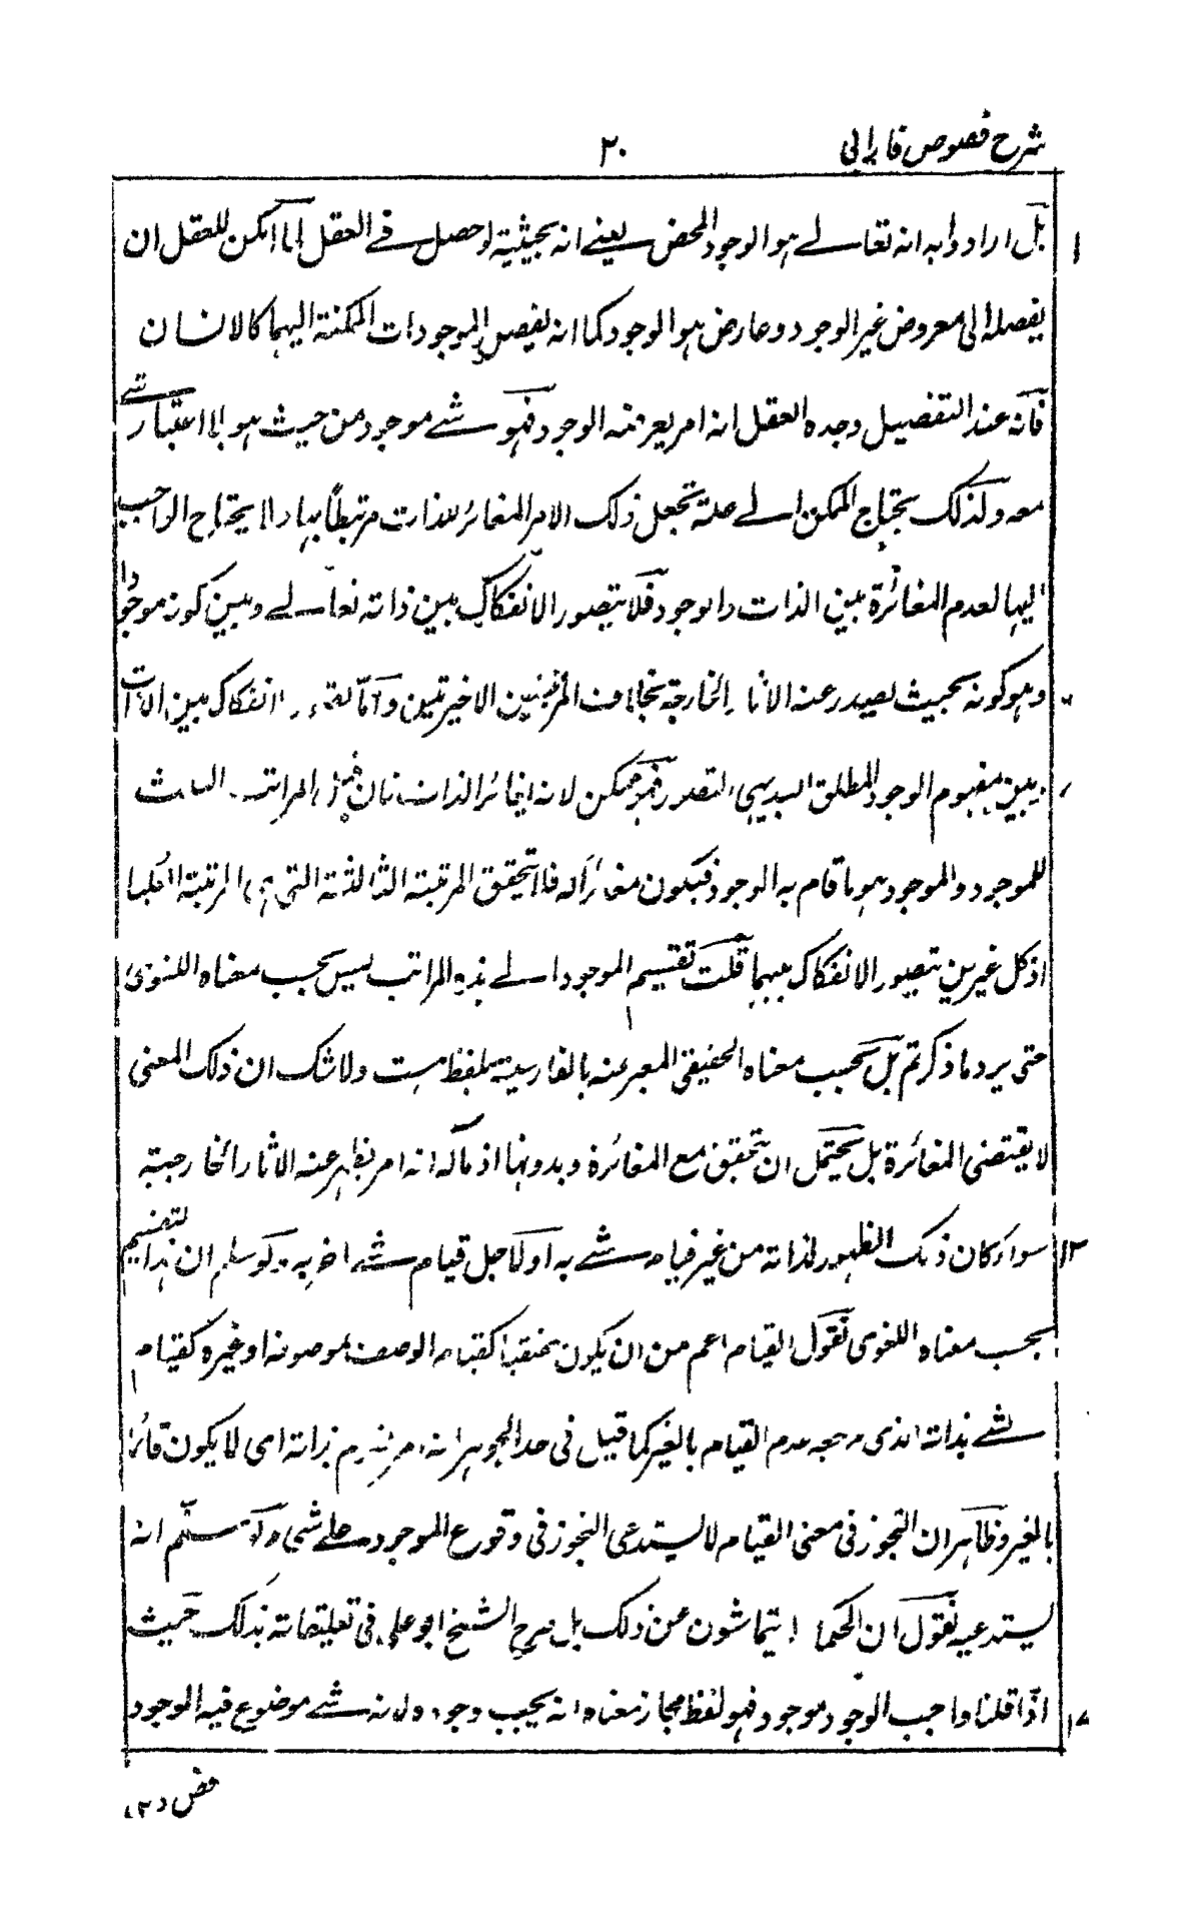 شرح فصوص فارابی
۲۰
بل ارادوا به انه تعالے هو الوجود المحض یعنے انه بحیثیة لو حصل فے العقل لما امکن للعقل ان
یفصله الی معروض غیر الوجود وعارض هو الوجود کما انه یفصل الموجودات الممکنة الیهما کالانسان
فانه عند التفصیل وجده العقل انه امر یعرضه الوجود فهو شے موجود من حیث هو لا باعتبار شے
معه ولذلک یحتاج الممکن الے علة تجعل ذلک الامر المغائر للذات مرتبطاً بها ولا یحتاج الواجب
الیها لعدم المغائرة بین الذات والوجود فلا یتصور الانفکاک بین ذاته تعالے وبین کونه موجودا
وهو کونه بحیث یصدر عنه الاثار الخارجة بخلاف المرتبتین الاخیرتین واما انفکاک بین الذات
وبین مفهوم الوجود المطلق البدیهی التصور فهو ممکن لانه یغائر الذات فان قیل المراتب الثلث
للموجود والموجود هو ما قام به الوجود فیکون مغائراً له فلا یتحقق المرتبة الثالثة التی هی المرتبة العلیا
اذ کل غیرین یتصور الانفکاک بینهما قلت تقسیم الموجود الے هذه المراتب لیس بحسب معناه اللغوی
حتی یرد ما ذکرتم بل بحسب معناه الحقیقی المعبر عنه بالفارسیة بلفظ هست ولا شک ان ذلک المعنی
لا یقتضی المغائرة بل یحتمل ان یتحقق مع المغائرة وبدونها اذ مآله انه امر یظهر عنه الاثار الخارجیة
۱۲ سواء کان ذلک الظهور لذاته من غیر قیام شے به او لاجل قیام شے اخر به ولو سلم ان هذا التقسیم
بحسب معناه اللغوی نقول القیام اعم من ان یکون حقیقیا کقیام الوصف بموصوفه او غیره کقیام
شے بذاته الذی مرجعه عدم القیام بالغیر کما قیل فی حد الجوهر انه امر قائم بذاته ای لا یکون قائما
بالغیر وظاهر ان التجوز فی معنی القیام لا یستدعی التجوز فی وقوع الموجود علے شی ولو سلم انه
یستدعیه نقول ان الحکما لا یتحاشون عن ذلک بل صرح الشیخ ابو علی فی تعلیقاته بذلک حیث
اذا قلنا واجب الوجود موجود فهو لفظ مجاز معناه انه یجب وجوده لا انه شے موضوع فیه الوجود